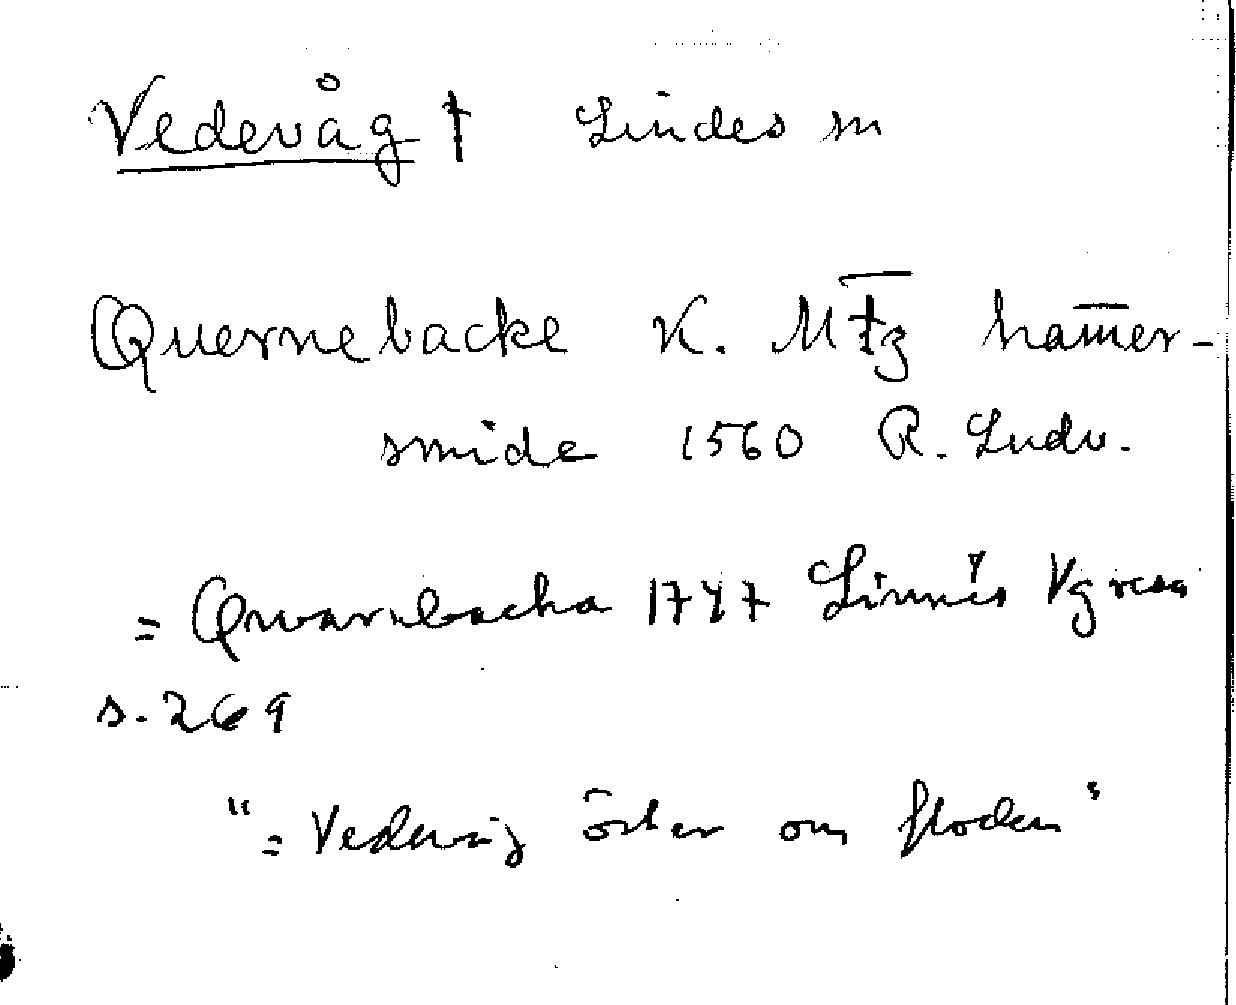 Vedevåg † Lindes sn
Quernebacke K. Mtz ham̄er-
smide 1560 R. Ludv.
= Qwarnbacka 1747 Linnés Vg resa
s. 269
"= Vedevåg öster om floden"